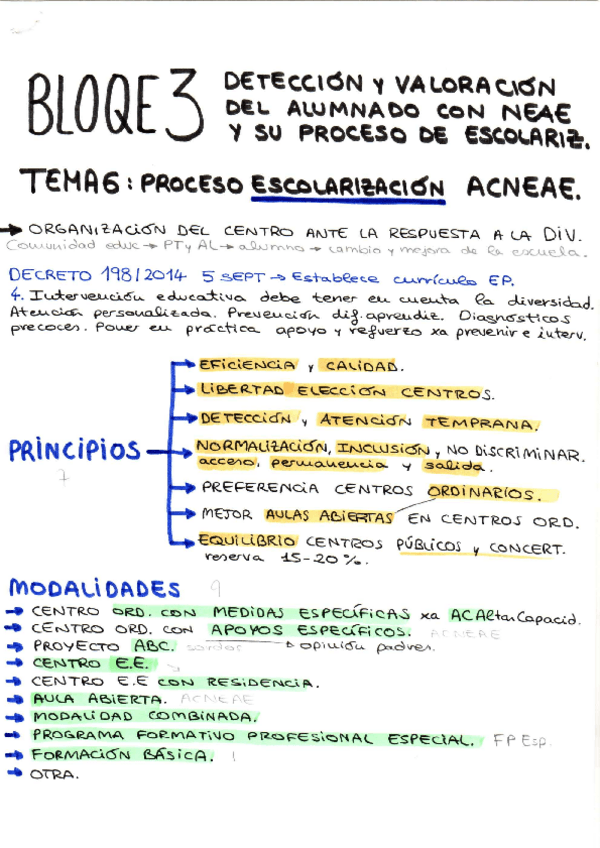 BLOQE 3 DETECCIÓN Y VALORACIÓN
DEL ALUMNADO CON NEAE
Y SU PROCESO DE ESCOLARIZ.
TEMA 6: PROCESO ESCOLARIZACIÓN ACNEAE.
→ ORGANIZACIÓN DEL CENTRO ANTE LA RESPUESTA A LA DIV.
Comunidad educ → PT y AL → alumno → cambio y mejora de la escuela.
DECRETO 198/2014 5 SEPT → Establece currículo EP.
4. Intervención educativa debe tener en cuenta la diversidad.
Atención personalizada. Prevención dif. aprendiz. Diagnósticos
precoces. Poner en práctica apoyo y refuerzo xa prevenir e interv.
PRINCIPIOS
7
→ EFICIENCIA y CALIDAD.
→ LIBERTAD ELECCIÓN CENTROS.
→ DETECCIÓN y ATENCIÓN TEMPRANA.
→ NORMALIZACIÓN, INCLUSIÓN y NO DISCRIMINAR.
acceso, permanencia y salida.
→ PREFERENCIA CENTROS ORDINARIOS.
→ MEJOR AULAS ABIERTAS EN CENTROS ORD.
→ EQUILIBRIO CENTROS PÚBLICOS y CONCERT.
reserva 15-20%.
MODALIDADES 9
→ CENTRO ORD. CON MEDIDAS ESPECÍFICAS xa ACAltasCapacid.
→ CENTRO ORD. CON APOYOS ESPECÍFICOS. ACNEAE
→ PROYECTO ABC. sordos → opinión padres.
→ CENTRO E.E.
→ CENTRO E.E CON RESIDENCIA.
→ AULA ABIERTA. ACNEAE
→ MODALIDAD COMBINADA.
→ PROGRAMA FORMATIVO PROFESIONAL ESPECIAL. FP Esp.
→ FORMACIÓN BÁSICA.
→ OTRA.